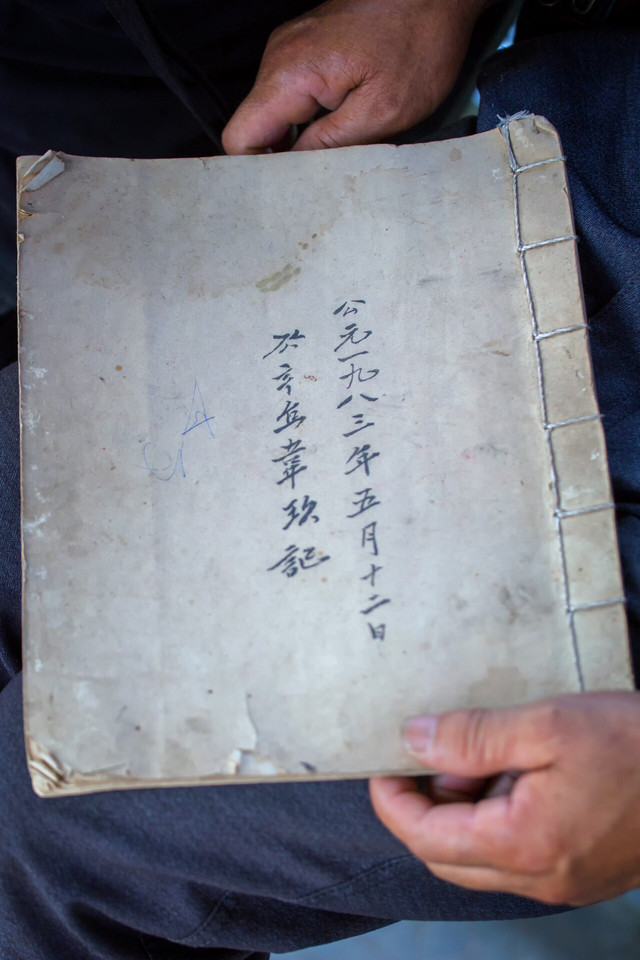 公元一九八三年五月十二日
於亭岳韋玖記